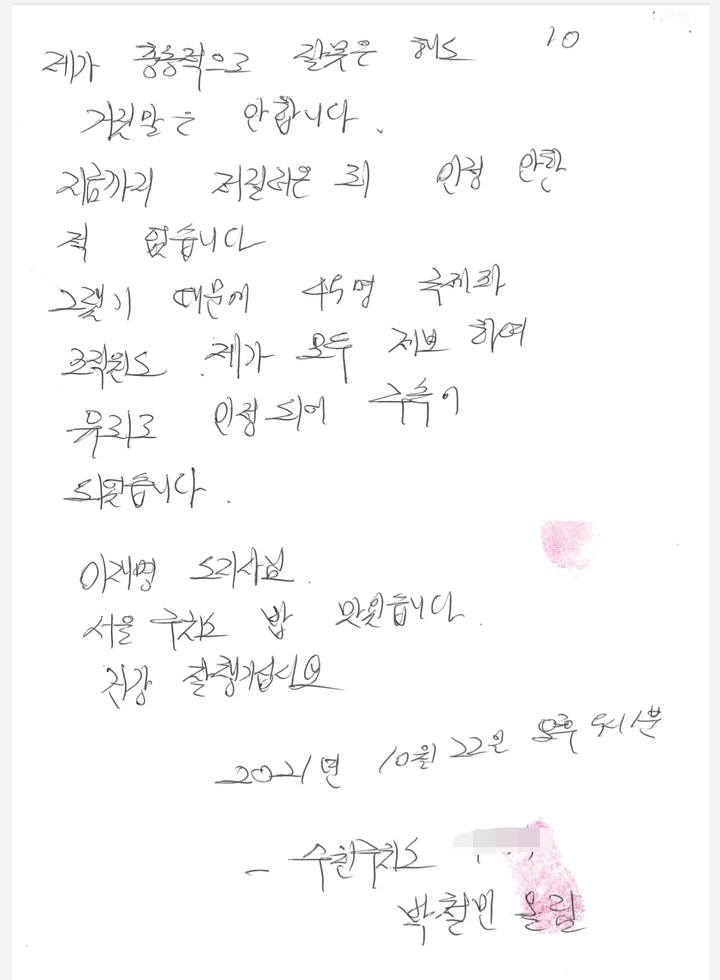 10
제가 충동적으로 잘못은 해도
거짓말은 안합니다.
지금까지 저질러온 죄 인정 안한
적 없습니다
그렇기 때문에 45명 국제파
조직원도 제가 모두 제보 하여
유죄로 인정 되어 구속이
되었습니다.
이재명 도지사님.
서울 구치소 밥 맛있습니다.
건강 잘챙기십시요
2021년 10월 22일 오후 5시1분
- 수원구치소
박철민 올림